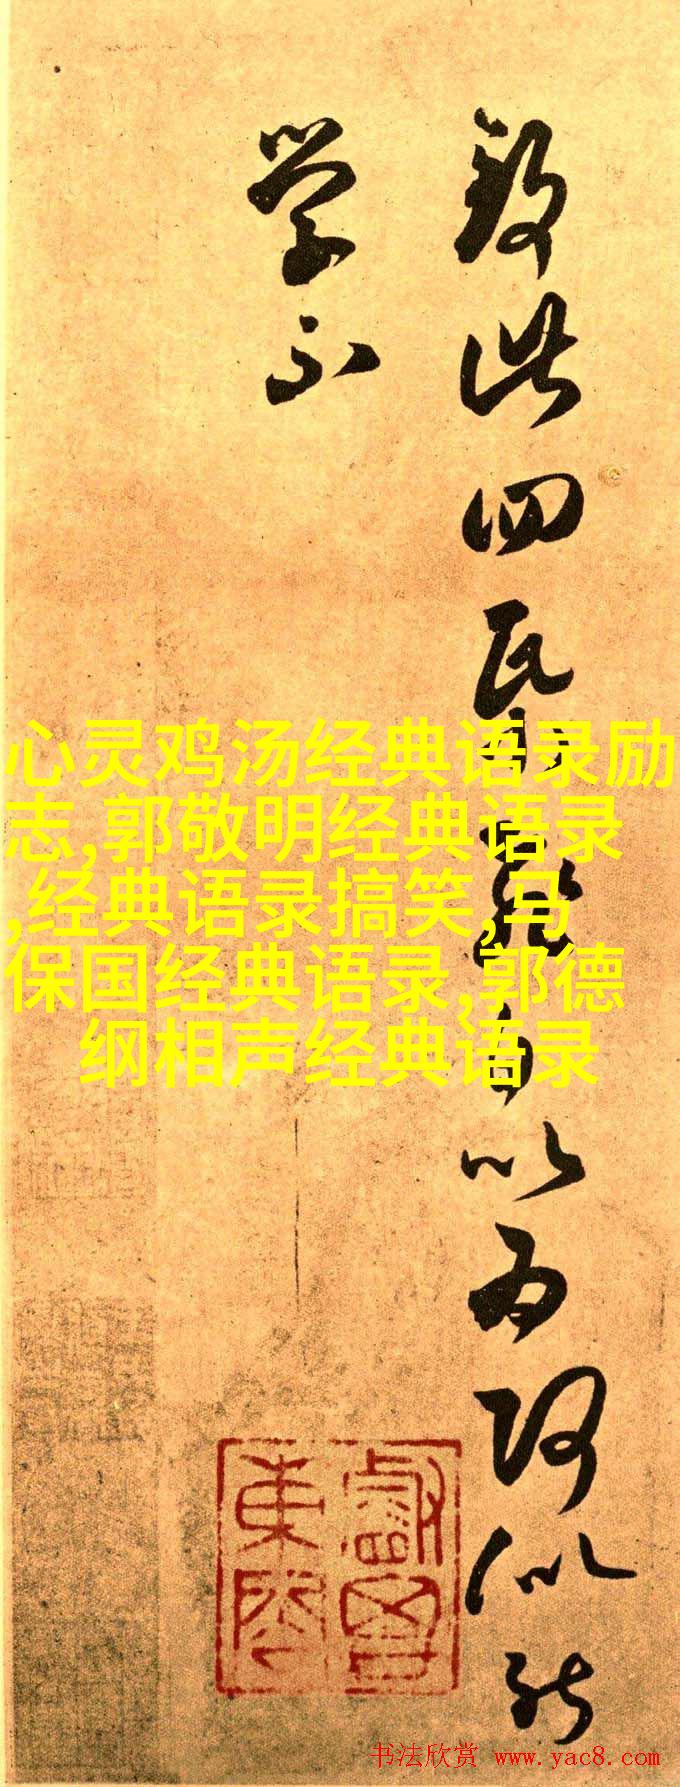 致此四自以为似能
学不
心灵鸡汤经典语录励
志,郭敬明经典语录
,经典语录搞笑,马
保国经典语录,郭德
纲相声经典语录
书法欣赏 www.yac8.com